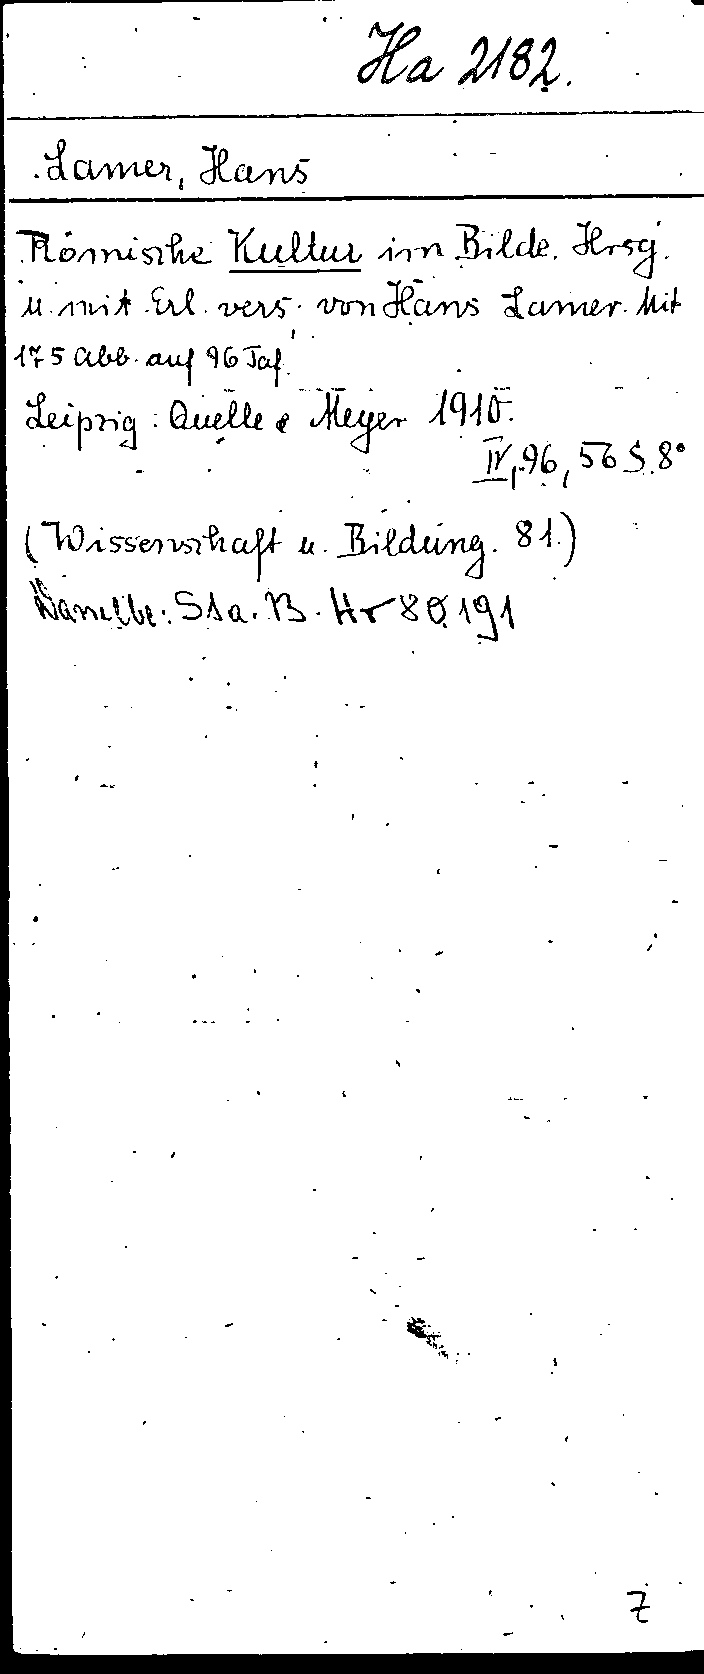 Ha 2182.
Lamer, Hans
Römische Kultur im Bilde. Hrsg.
u. mit Erl. vers. von Hans Lamer. Mit
175 Abb. auf 96 Taf.
Leipzig: Quelle & Meyer 1910.
IV, 96, 56 S. 8°
(Wissenschaft u. Bildung. 81.)
Dasselbe: Sta. B. Hr 80 191
Z